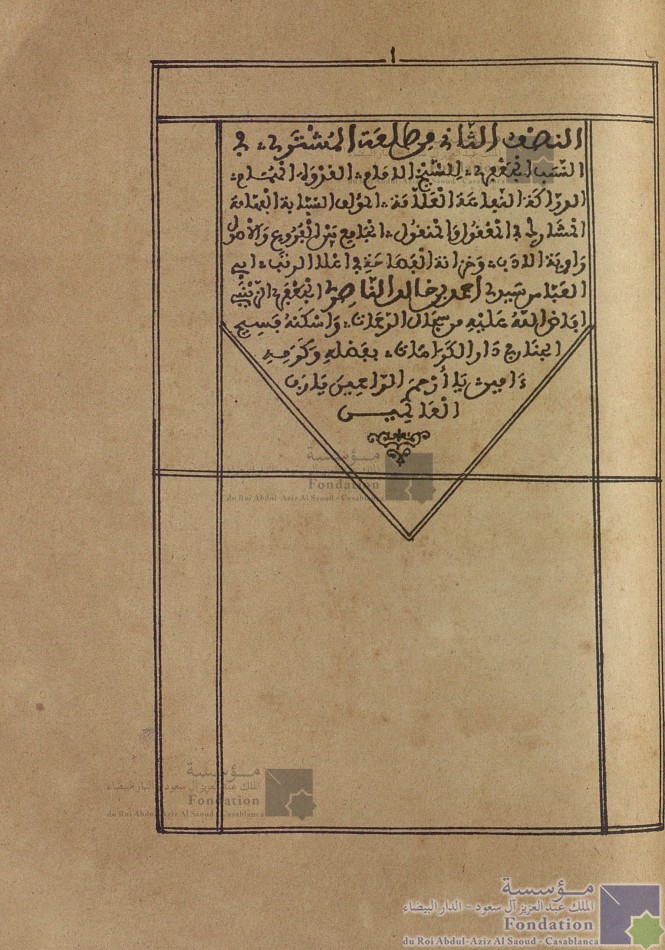 ا
النصف الثاني من طلعة المشتري في
النسب الجعفري للشيخ الامام القدوة الهمام
الدراكة العلامة المؤلف النسابة الفهامة
المشارك في المعقول والمنقول الجامع بين الفروع والاصول
راوية الادب وخزانة في اعلا الرتب ابي
العباس سيدي أحمد بن خالد الناصري الجعفري الزينبي
افاض الله عليه من سجال الرحمات واسكنه فسيح
الجنان دار الكرامات بفضله وكرمه
ءامين يا أرحم الراحمين يارب
العالمين
مؤسسة
الملك عبد العزيز آل سعود - الدار البيضاء
Fondation
du Roi Abdul-Aziz Al Saoud - Casablanca
مؤسسة
الملك عبد العزيز آل سعود - الدار البيضاء
Fondation
du Roi Abdul-Aziz Al Saoud - Casablanca
مؤسسة
الملك عبد العزيز آل سعود - الدار البيضاء
Fondation
du Roi Abdul-Aziz Al Saoud - Casablanca